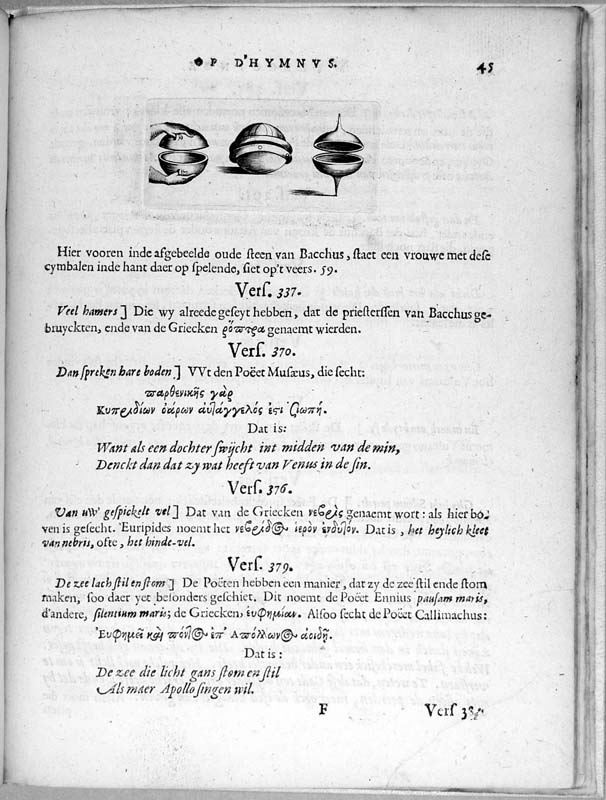 OP D'HYMNVS.
45
Hier vooren inde afgebeelde oude steen van Bacchus, staet een vrouwe met dese
cymbalen inde hant daer op spelende, siet op't veers. 59.
Vers. 337.
Veel hamers] Die wy alreede geseyt hebben, dat de priesterssen van Bacchus ge-
bruyckten, ende van de Griecken ῥόπτρα genaemt wierden.
Vers. 370.
Dan spreken hare boden] VVt den Poëet Musæus, die secht:
παρθενικῆς γὰρ
Κυπριδίων ὀάρων αὐτάγγελός ἐστι σιωπή.
Dat is:
Want als een dochter swijcht int midden van de min,
Denckt dan dat zy wat heeft van Venus in de sin.
Vers. 376.
Van uw' gespickelt vel] Dat van de Griecken νεβρὶς genaemt wort: als hier bo-
ven is gesecht. Euripides noemt het νεβρίδος ἱερὸν ἐνδυτόν. Dat is, het heylich kleet
van nebris, ofte, het hinde-vel.
Vers. 379.
De zee lach stil en stom] De Poëten hebben een manier, dat zy de zee stil ende stom
maken, soo daer yet besonders geschiet. Dit noemt de Poëet Ennius pausam maris,
d'andere, silentium maris; de Griecken, ἐυφημίαν. Alsoo secht de Poëet Callimachus:
Ἐυφημεῖ καὶ πόντος ἐπ' Απόλλωνος ἀοιδῇ.
Dat is:
De zee die licht gans stom en stil
Als maer Apollo singen wil.
F
Vers